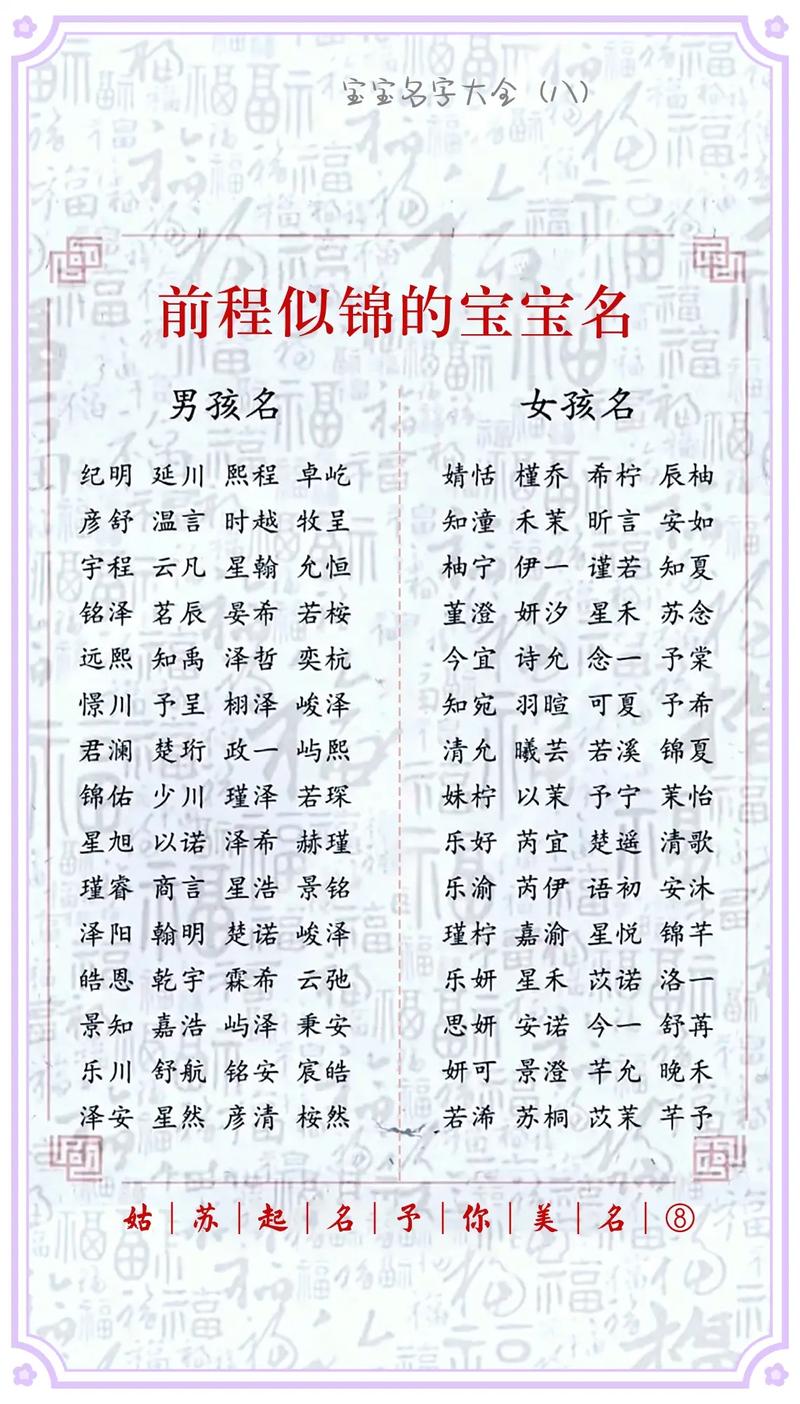 宝宝名字大全（八）
前程似锦的宝宝名
男孩名
纪明 延川 熙程 卓屹
彦舒 温言 时越 牧呈
宇程 云凡 星翰 允恒
铭泽 茗辰 晏希 若桉
远熙 知禹 泽哲 奕杭
憬川 予呈 栩泽 峻泽
君澜 楚珩 政一 屿熙
锦佑 少川 瑾泽 若琛
星旭 以诺 泽希 赫瑾
瑾睿 商言 星浩 景铭
泽阳 翰明 楚诺 峻泽
皓恩 乾宇 霖希 云弛
景知 嘉浩 屿泽 秉安
乐川 舒航 铭安 宸皓
泽安 星然 彦清 桉然
女孩名
婧恬 槿乔 希柠 辰柚
知潼 禾茉 昕言 安如
柚宁 伊一 谨若 知夏
堇澄 妍汐 星禾 苏念
今宜 诗允 念一 予棠
知宛 羽暄 可夏 予希
清允 曦芸 若溪 锦夏
妹柠 以茉 予宁 茉怡
乐好 芮宜 楚遥 清歌
乐渝 芮伊 语初 安沐
瑾柠 嘉渝 星悦 锦芊
乐妍 星禾 苡诺 洛一
思妍 安诺 今一 舒苒
妍可 景澄 芊允 晚禾
若浠 苏桐 苡茉 芊予
姑｜苏｜起｜名｜予｜你｜美｜名｜⑧